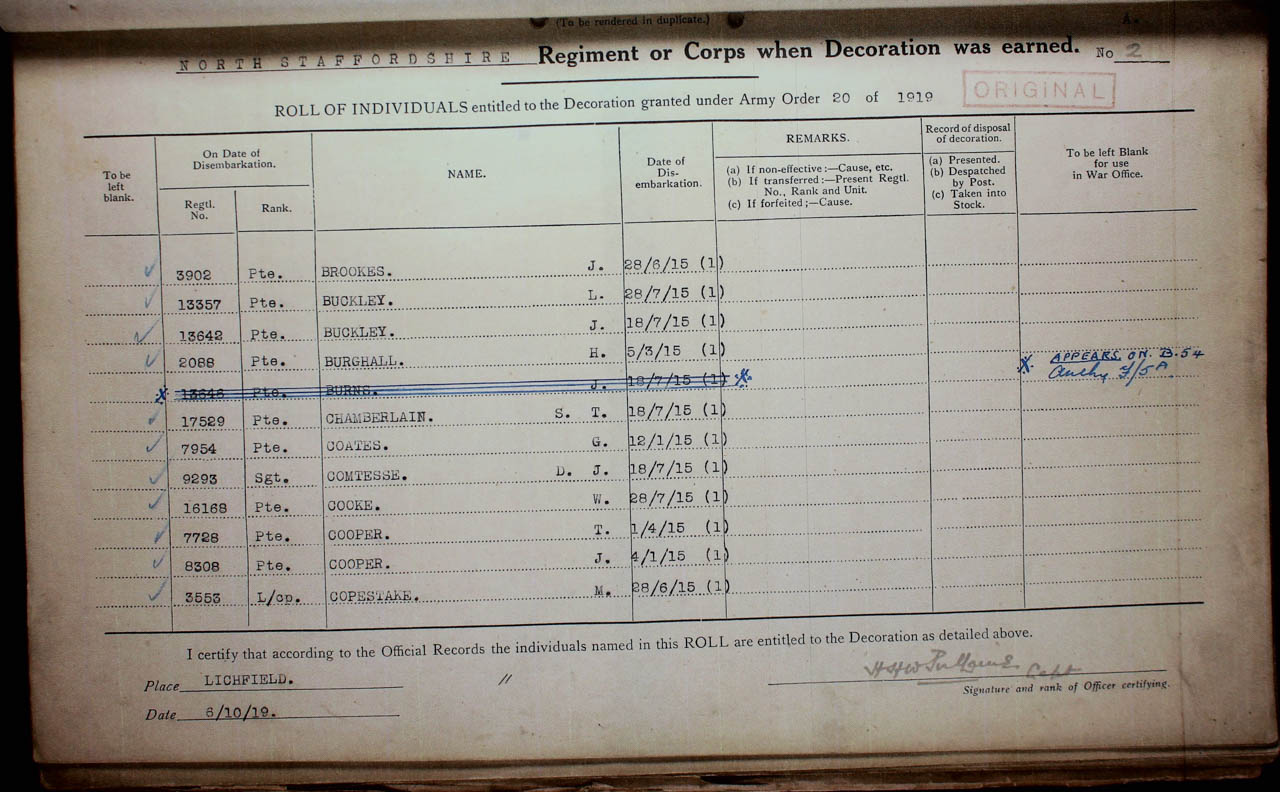 (To be rendered in duplicate.) A.
NORTH STAFFORDSHIRE Regiment or Corps when Decoration was earned. No 2
ROLL OF INDIVIDUALS entitled to the Decoration granted under Army Order 20 of 1919
ORIGINAL
To be left blank.
On Date of Disembarkation.
Regtl. No.
Rank.
NAME.
Date of Dis-embarkation.
REMARKS.
(a) If non-effective:—Cause, etc.
(b) If transferred:—Present Regtl. No., Rank and Unit.
(c) If forfeited;—Cause.
Record of disposal of decoration.
(a) Presented.
(b) Despatched by Post.
(c) Taken into Stock.
To be left Blank for use in War Office.
3902 Pte. BROOKES. J. 28/6/15 (1)
13357 Pte. BUCKLEY. L. 28/7/15 (1)
13642 Pte. BUCKLEY. J. 18/7/15 (1)
2088 Pte. BURGHALL. H. 5/3/15 (1)
X Pte. BURNS. J. 18/7/15 (1) X X APPEARS ON B.54
17529 Pte. CHAMBERLAIN. S. T. 18/7/15 (1)
7954 Pte. COATES. G. 12/1/15 (1)
9293 Sgt. COMTESSE. D. J. 18/7/15 (1)
16168 Pte. COOKE. W. 28/7/15 (1)
7728 Pte. COOPER. T. 1/4/15 (1)
8308 Pte. COOPER. J. 4/1/15 (1)
3553 L/cp. COPESTAKE. M. 28/6/15 (1)
I certify that according to the Official Records the individuals named in this ROLL are entitled to the Decoration as detailed above.
Place LICHFIELD. // Capt
Signature and rank of Officer certifying.
Date 6/10/19.